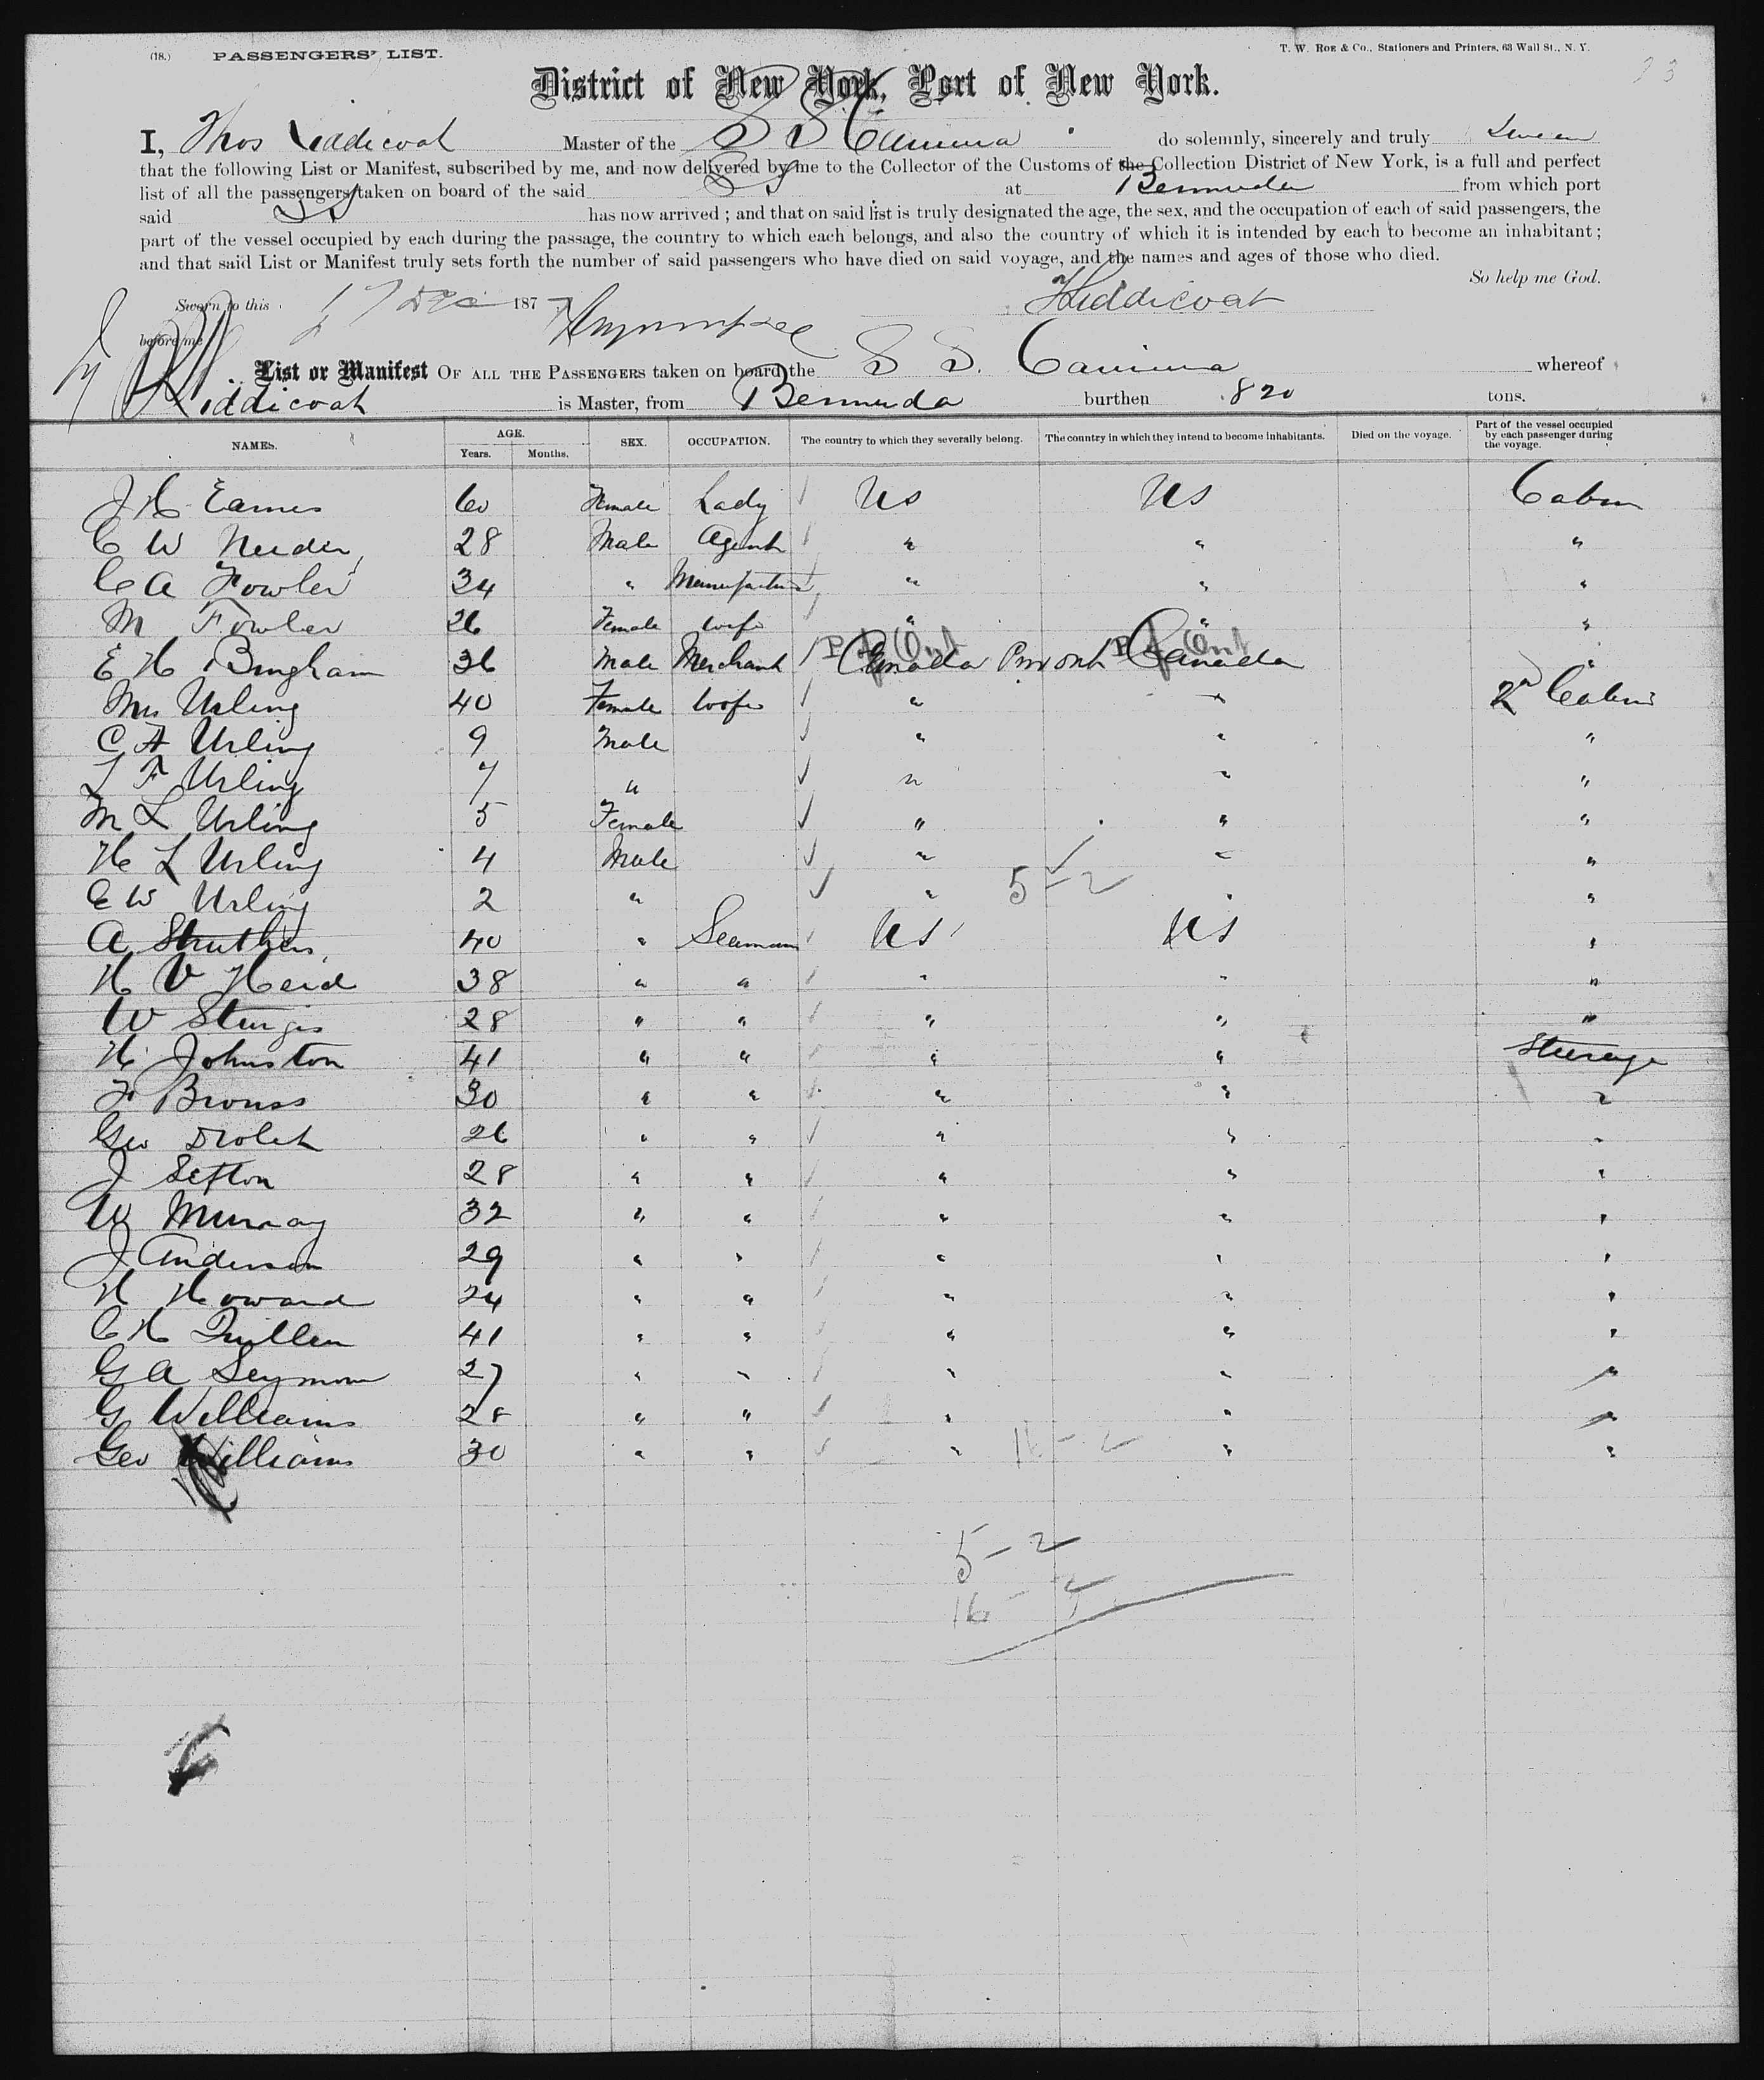 (18.) PASSENGERS' LIST.
T. W. ROE & CO., Stationers and Printers, 63 Wall St., N. Y.
District of New York, Port of New York.
I, Thos Liddicoat Master of the S S Canima do solemnly, sincerely and truly Swear
that the following List or Manifest, subscribed by me, and now delivered by me to the Collector of the Customs of the Collection District of New York, is a full and perfect
list of all the passengers taken on board of the said SS at Bermuda from which port
said SS has now arrived; and that on said list is truly designated the age, the sex, and the occupation of each of said passengers, the
part of the vessel occupied by each during the passage, the country to which each belongs, and also the country of which it is intended by each to become an inhabitant;
and that said List or Manifest truly sets forth the number of said passengers who have died on said voyage, and the names and ages of those who died.
So help me God.
Sworn to this 17 Dec 1877
TLiddicoat
before me
List or Manifest OF ALL THE PASSENGERS taken on board the S S. Canima whereof
Liddicoat is Master, from Bermuda burthen 820 tons.
NAMES. AGE. Years. Months. SEX. OCCUPATION. The country to which they severally belong. The country in which they intend to become inhabitants. Died on the voyage. Part of the vessel occupied by each passenger during the voyage.
J H Eames 60 Female Lady US US Cabin
C W 28 Male Agent " " "
C A Fowler 34 " Manufacturer " " "
M Fowler 26 Female Wife " " "
E H Bingham 36 Male Merchant Canada Canada "
Mrs Urling 40 Female Wife " " 2d Cabin
C A Urling 9 Male " " "
L F Urling 7 " " " "
M L Urling 5 Female " " "
H L Urling 4 Male " " "
E W Urling 2 " " 5 - 2 " "
A Struthers 40 " Seaman US US "
H V Heid 38 " " " " "
W Sturgis 28 " " " " "
H Johnston 41 " " " " Steerage
F Brouss 30 " " " " "
Geo 26 " " " " "
J Sefton 28 " " " " "
W Murray 32 " " " " "
J Anderson 29 " " " " "
H Howard 24 " " " " "
C H Quillen 41 " " " " "
G A Seymour 27 " " " " "
G Williams 28 " " " " "
Geo Williams 30 " " " " "
5 - 2
16 - 2